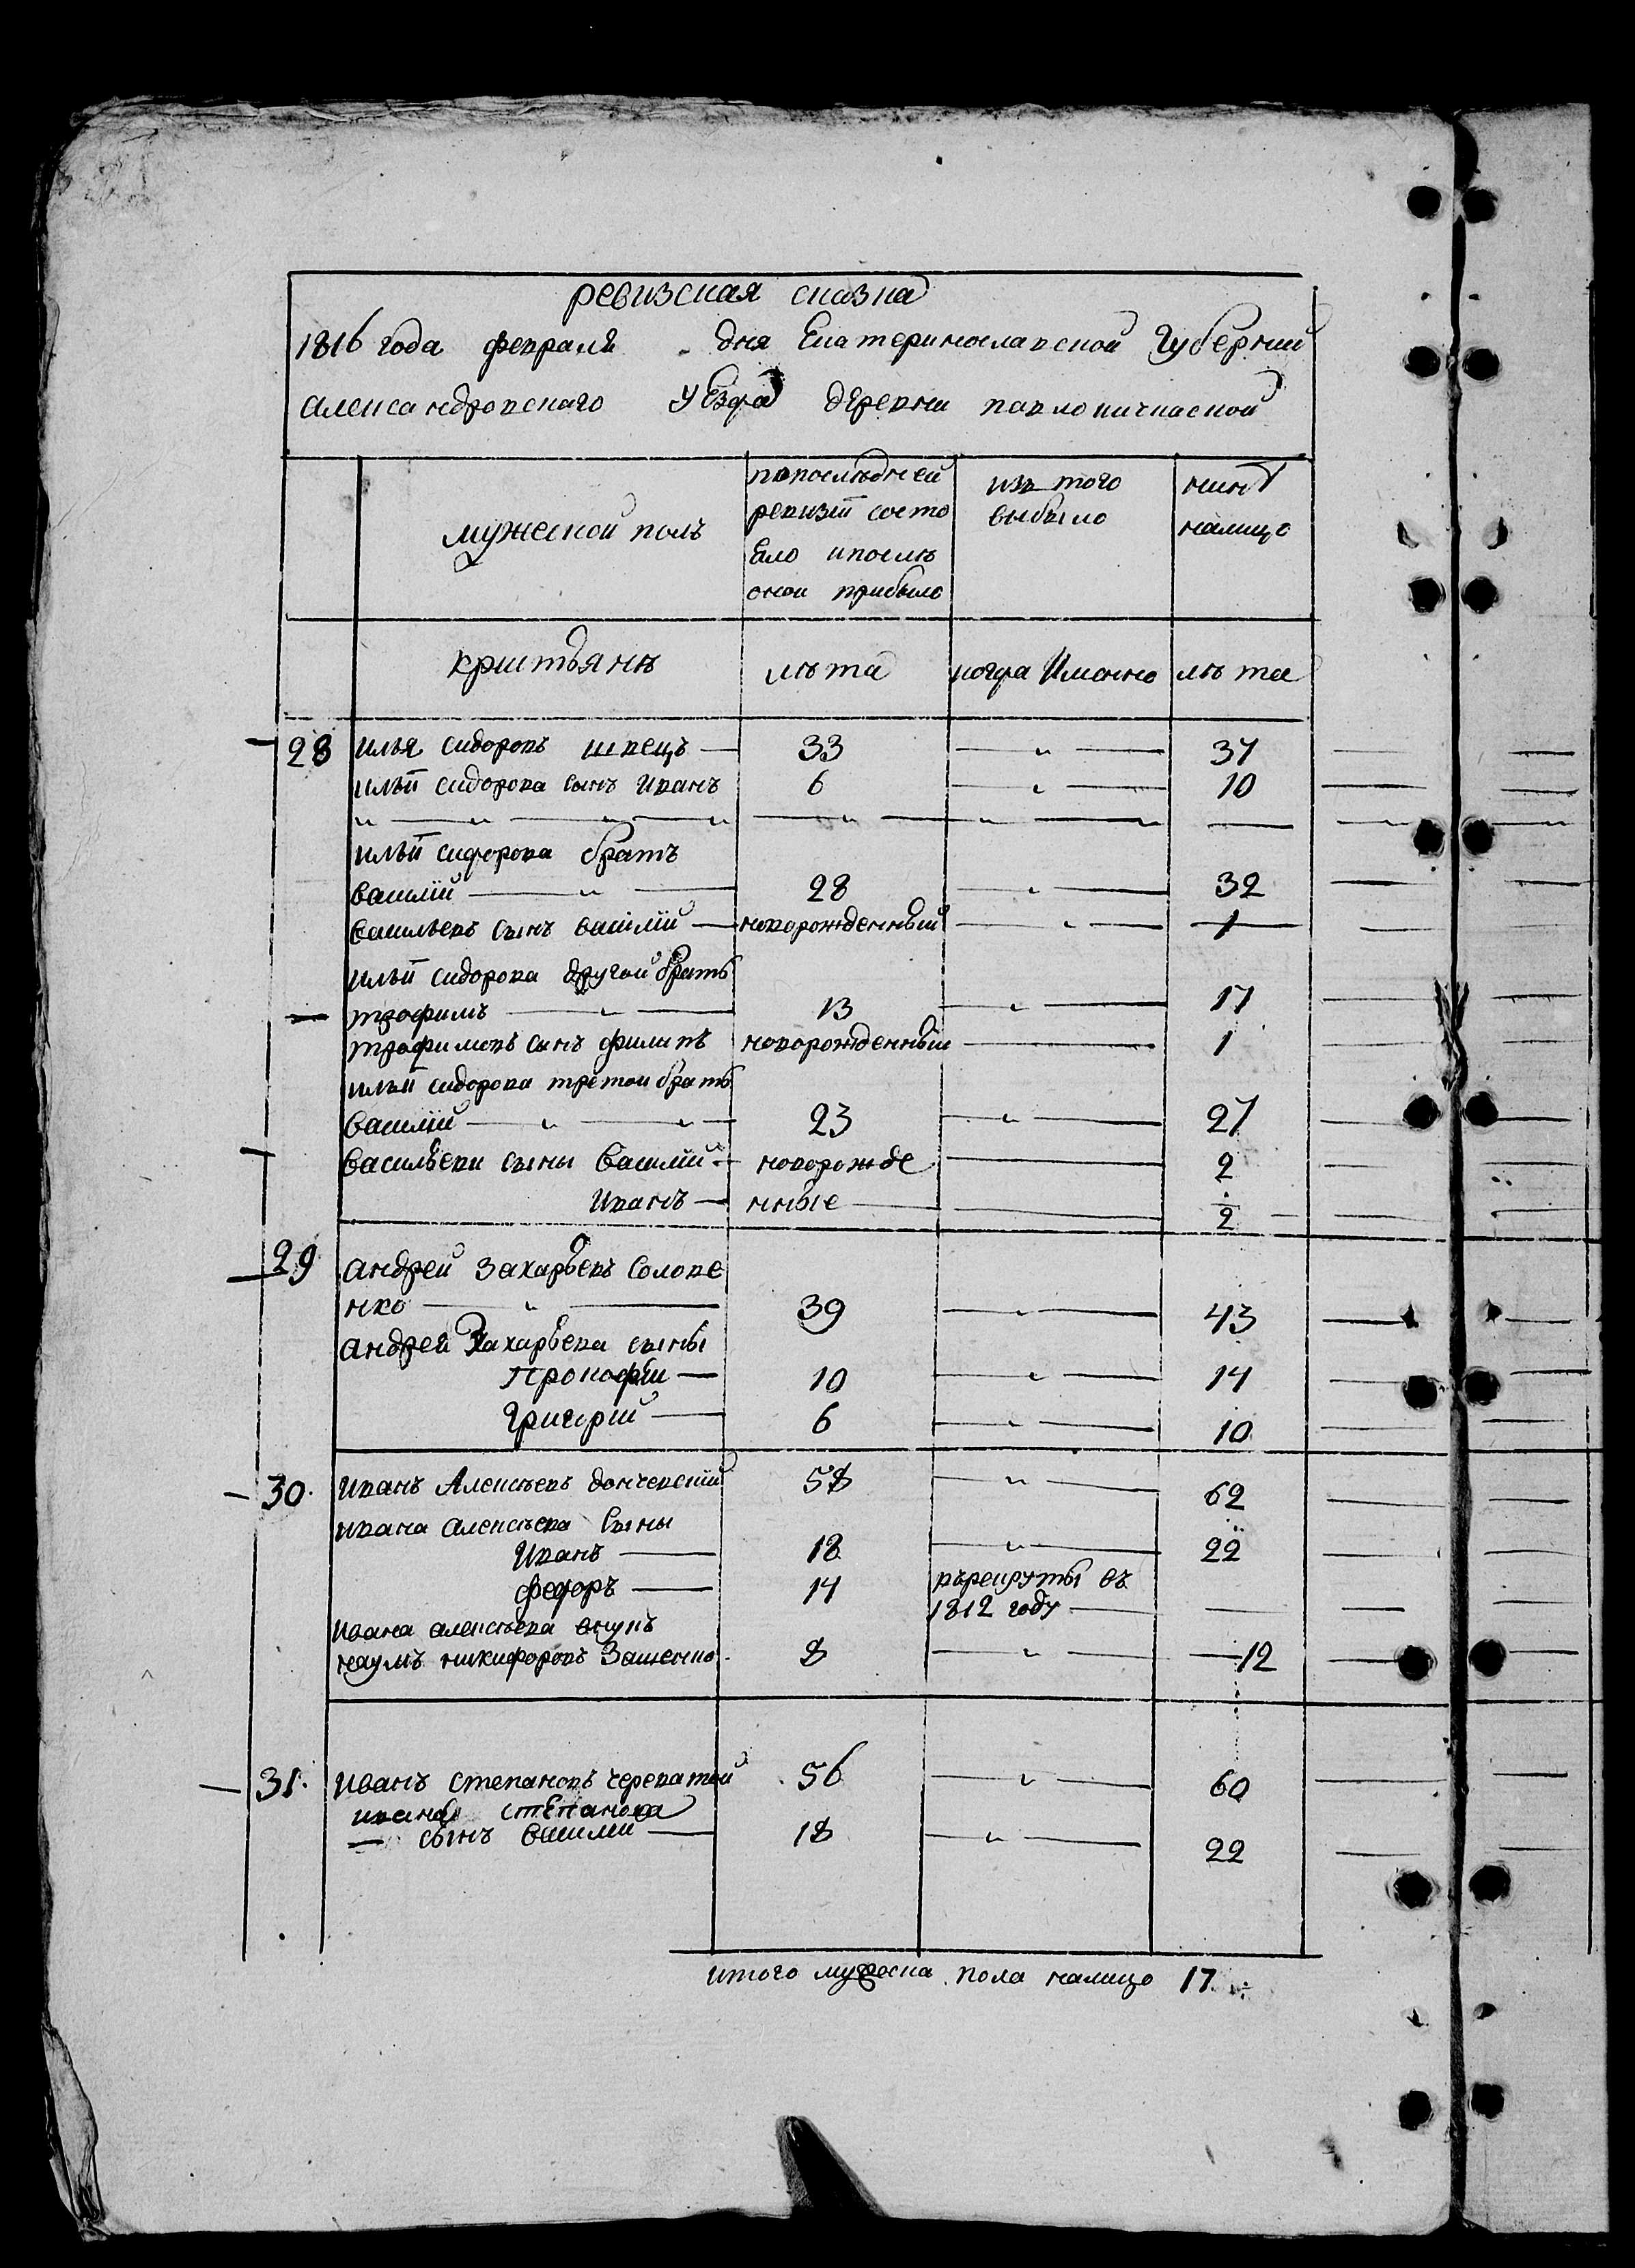 ревизская сказка
1816 года февраля дня Екатеринославской Губернии
александровского уезда деревни павлокичкаской
мужеской полъ
по последней
ревизіи состо
ело и после
оной прибыло
изъ того
выбыло
ныне
налицо
лета
когда Именно
лета
28 илья сидоровъ швецъ — 33 — „ — 37
ильи сидорова сынъ иванъ 6 — „ — 10
ильи сидорова братъ
василій — „ — 28 — „ — 32
васильевъ сынъ василій — новорожденный — „ — 1
ильи сидорова другой братъ
трофимъ — „ — 13 — „ — 17
трофимовъ сынъ филипъ новорожденный — 1
ильи сидорова третой братъ
василій — „ — „ — 23 — „ — 27
васильевы сыны василій — новорожде — 2
иванъ — нные — 2
29 андрей захарьевъ солове
нко — „ — 39 — „ — 43
андрея захарьева сыны
прокофій — 10 — „ — 14
григорій — 6 — „ — 10
30. иванъ Алексеевъ дончевскій 58 — „ — 62
ивана алексеева сыны
иванъ — 18 — „ — 22
федоръ — 14 врекруты въ
1812 году —
ивана алексеева внукъ
наумъ никифоровъ 8 — „ — 12
31. иванъ степановъ череватой 56 — „ — 60
ивана степанова
— сынъ василій — 18 — „ — 22
итого мужеска пола налицо 17